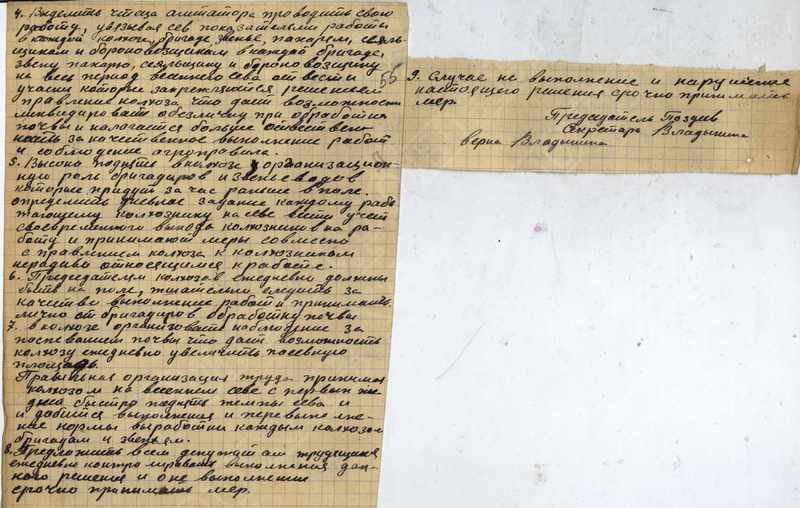 4. Выделить чтаца агитатора проводить свою
работу, увязывая сев показателями работы
в каждой колхоза, бригаде, звенье, пахарем, сеяль-
щикам и бороновальщикам в каждой бригаде,
звену пахарю, сеяльщику и бороновзщику
на весь период весеннего сева отвести
участки которые закрепляются решением
правления колхоза, что даст возможность
ликвидировать обезличку при обработки
почвы и налогается больше ответствен
ность за качественное выполнение работ
и соблюдение агроправила.
5. Высоко поднять в колхозе организацион-
ную роль бригадиров и звеньеводов
которые придут за час раньше в поле.
определить дневное задание каждому рабо
тающему колхознику на севе вести учет
своевременного выхода колхозников на ра-
боту и принимают меры совместно
с правлением колхоза к колхозникам
нерадиво относящимся к работе.
6. Председатели колхозов ежедневно должны
быть на поле, тщательно следить за
качество выполнение работ и принимать
лично от бригадиров обработку почвы
7. в колхозе организовать наблюдение за
поспеванием почвы что даст возможность
колхозу ежедневно увеличить посевную
площадь.
Правильная организация труда принимая
колхозом на весеннем севе с первых же
дней быстро поднять темпы сева и
и добится выполнения и перевыполне-
ние нормы выработки каждым колхозом
бригадам и звеньям.
8. Предложить всем депутатам трудящихся
ежедневно контролировать выполнения дан-
ного решения и о не выполнении
срочно принимать мер.
55
9. Случае не выполнение и нарушение
настоящего решения срочно принимать
мер.
Председатель Поздив
Секретарь Владыкина
верна Владыкина